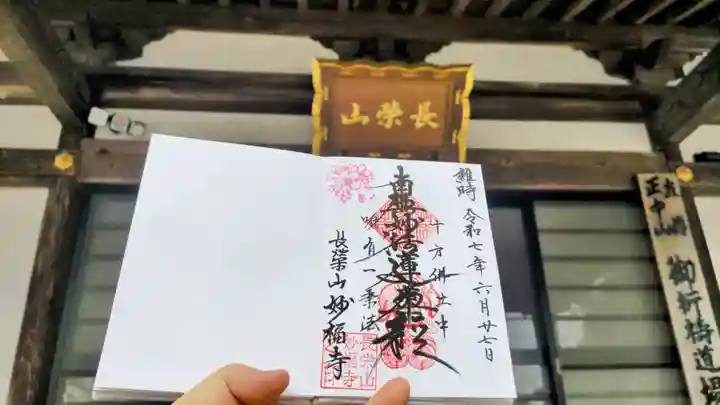 長榮山
維時 令和七年六月廿七日
十方佛土中
南無妙法蓮華経
唯有一乗法
長榮山妙福寺
長榮山
妙福寺
正中山
御祈祷道場